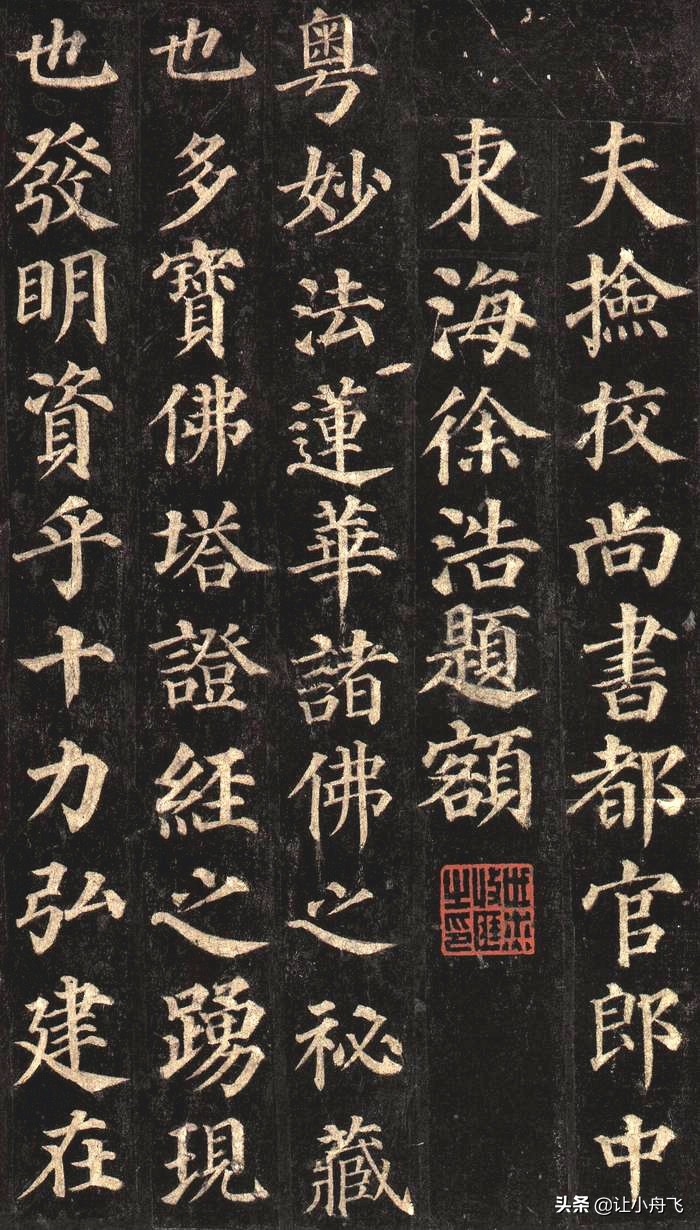 夫撿挍尚書都官郎中
東海徐浩題額
粵妙法蓮華諸佛之祕藏
也多寶佛塔證經之踴現
也發明資乎十力弘建在
头条 @让小舟飞